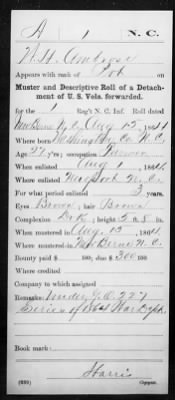 A 1 N.C.
W. H. Ambrose
Appears with rank of Pvt on
Muster and Descriptive Roll of a Detach-
ment of U. S. Vols. forwarded.
for the 1 Reg't N. C. Inf. Roll dated
New Berne N. C. Aug 15, 1864.
Where born Washington Co. N. C.
Age 27 y'rs; occupation Farmer
When enlisted Aug 1, 1864.
Where enlisted N. C.
For what period enlisted 3 years.
Eyes Brown; hair Brown
Complexion Dark; height 5 ft. 8 in.
When mustered in Aug. 15, 1864.
Where mustered in New Berne N. C.
Bounty paid $ 100; due $ 300 100
Where credited
Company to which assigned
Remarks: Under G.O. 227
Series of 1864 War Dept.
Book mark:
Harris
(339) Copyist.